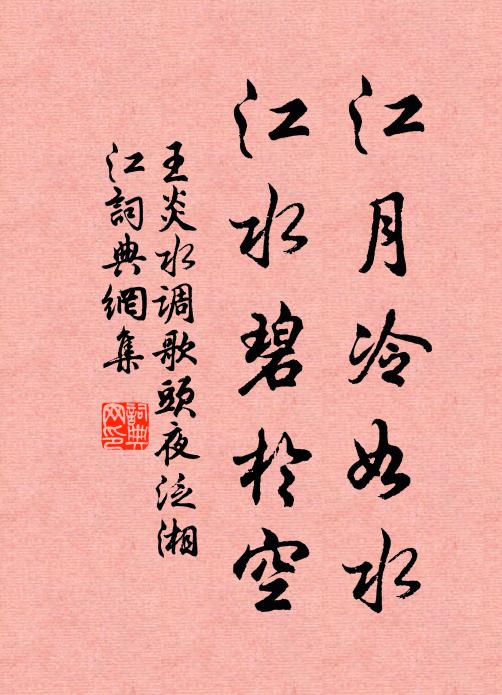 江月冷如水
江水碧於空
王炎水调歌頭夜泛湘
江詞典網集
詞典网印